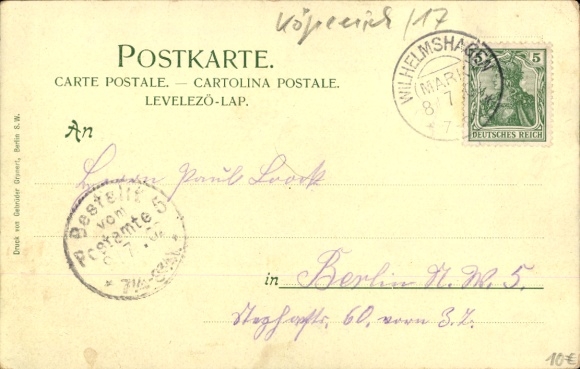 Köpenick /17
POSTKARTE.
CARTE POSTALE. — CARTOLINA POSTALE.
LEVELEZŐ-LAP.
WILHELMSHAGEN
(MARK)
8 7
5
DEUTSCHES REICH
An
Herrn Paul
Bestellt
vom
Postamte 5
8. 7.
in Berlin N. W. 5.
60, vorn 3. Z.
Druck von Gebrüder Grunert, Berlin S.W.
10€